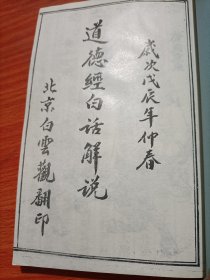 歲次戊辰年仲春
道德經白话解说
北京白雲觀翻印